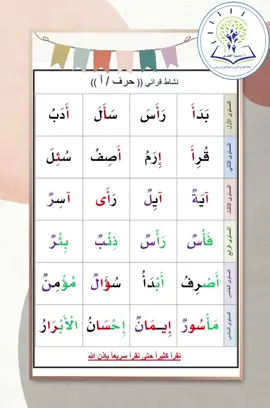 نشاط قرائي (( حرف / أ ))
المستوى الأول بَدَأَ رَأَسَ سَأَلَ أَدَبُ
المستوى الثاني قُرِأَ إِرَمُ أَصِفُ سُئِلَ
المستوى الثالث آيَةٌ آيِلٌ رَأَى آسِرٌ
المستوى الرابع فَأْسٌ رَأْسٌ ذِئْبٌ بِئْرٌ
المستوى الخامس أَصْرِفُ أَبْدَأُ سُؤَالٌ مُؤْمِنٌ
المستوى السادس مَأْسُورٌ إِيـمَانٌ إِحْسَانُ الْأَبْرَارُ
نقرأ كثيراً حتى نقرأ سريعاً بإذن الله